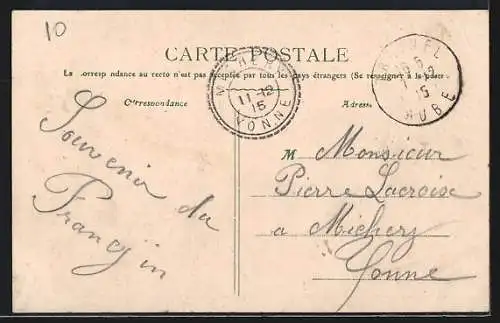 10
CARTE POSTALE
La correspondance au recto n'est pas acceptée par tous les pays étrangers (Se renseigner à la poste)
Correspondance
Adresse
MICHERY
11-12
15
YONNE
15
AUBE
Souvenir du
M Monsieur
Pierre Lacroix
a Michery
Yonne